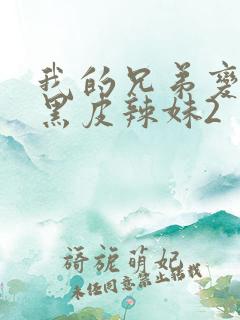 我的兄弟变
黑皮辣妹2
旖旎萌妃
未经同意禁止转载